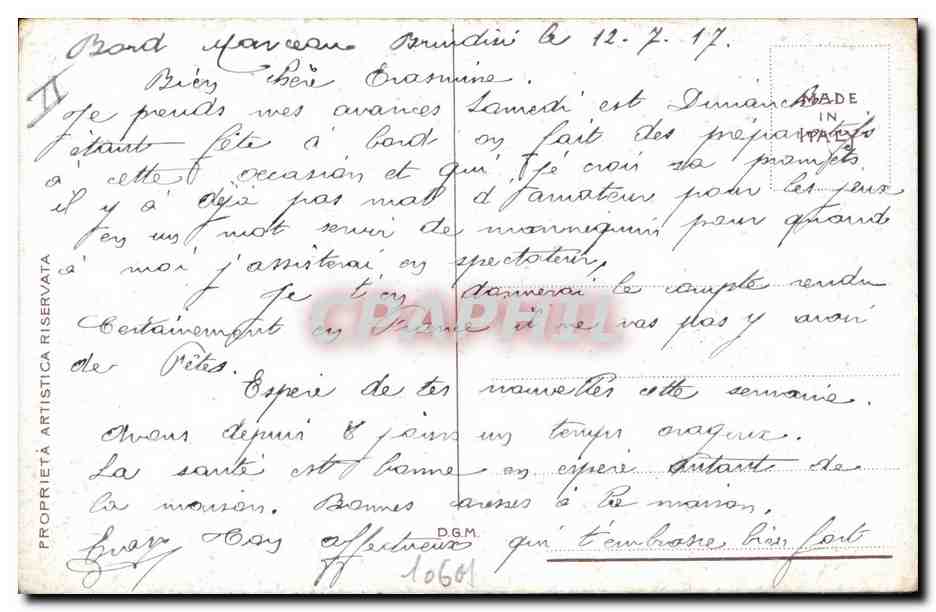 Bord Marceau Brindisi le 12-7-17.
II
Bien Chère Erasmine.
Je prends mes avances Samedi est Dimanche
étant fête à bord on fait des préparatifs
à cette occasion et qui je crois sa promets
il y à déjà pas mal d'amateur pour les jeux
en un mot servir de mannequins pour quand
à moi j'assisterai en spectateur,
Je t'en donnerai le compte rendu
Certainement en France il ne vas pas y avoir
de Fêtes.
Espère de tes nouvelles cette semaine.
Avons depuis 8 jours un temps orageux.
La santé est bonne en espère autant de
la maison. Bonnes caresses à la maison.
Ton affectueux qui t'embrasse bien fort
MADE
IN
ITALY
PROPRIETÀ ARTISTICA RISERVATA
D.G.M.
10601
CPAPHIL